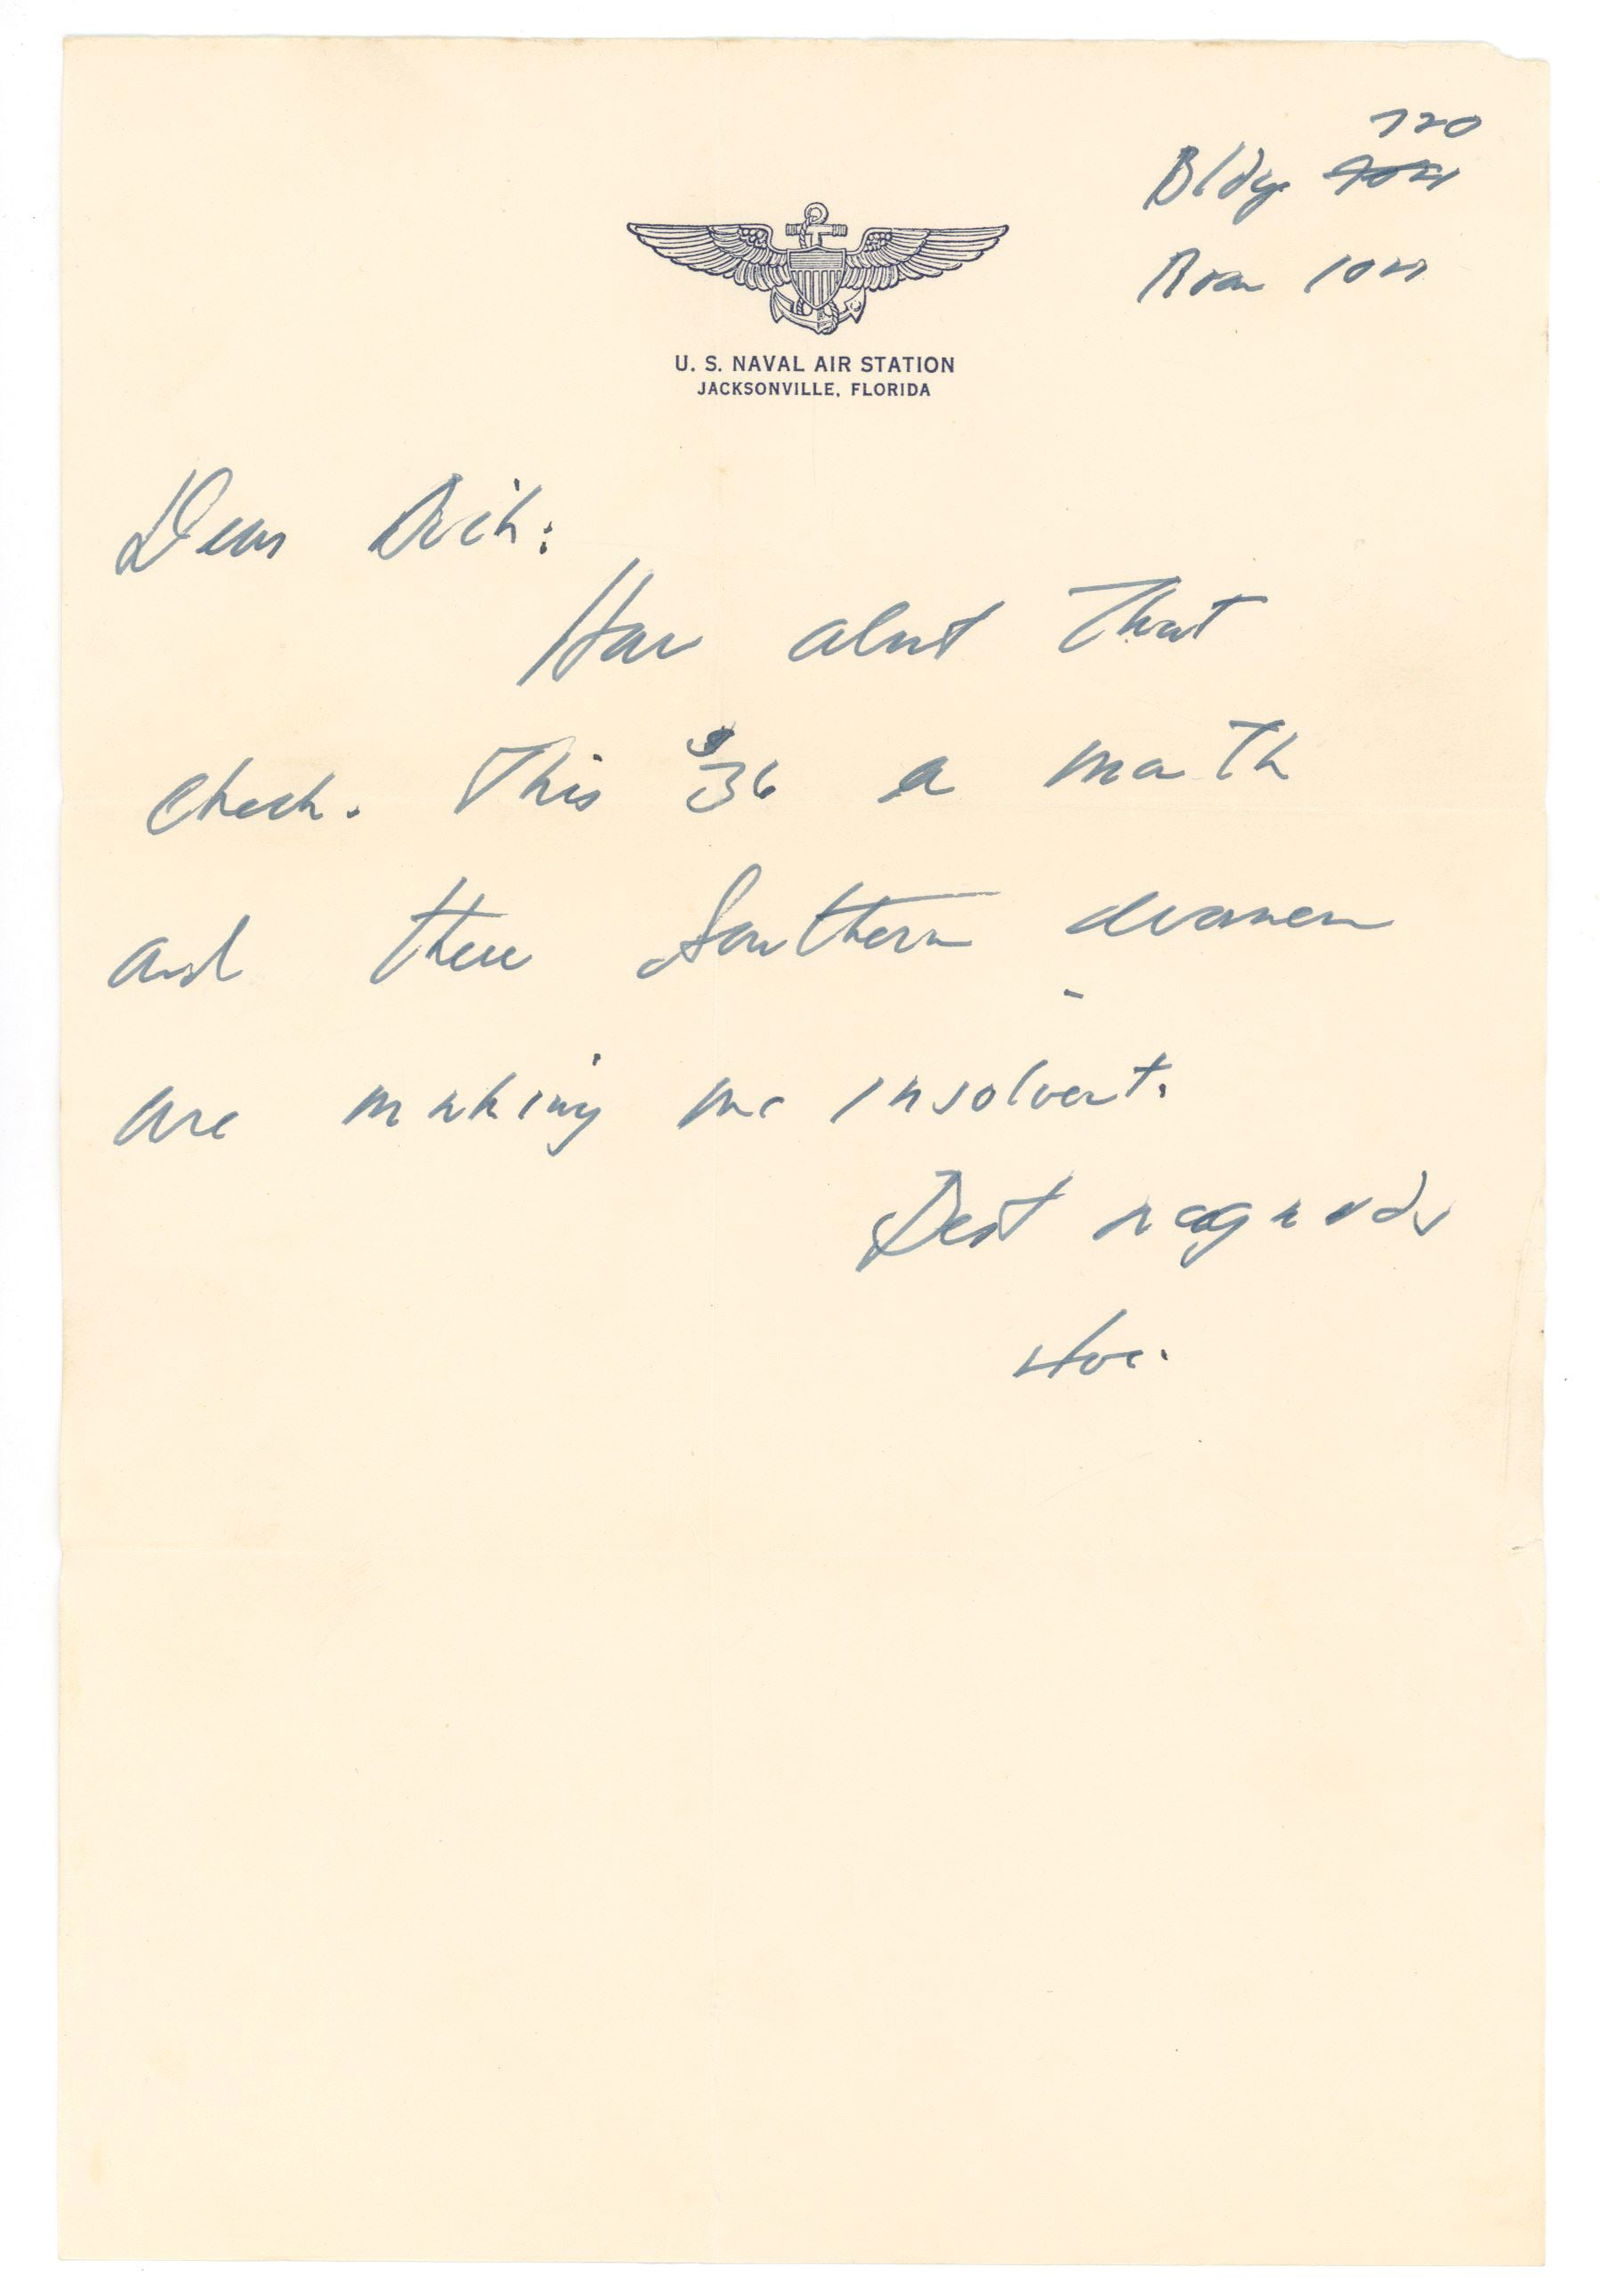 720
Bldg
Room 104
U. S. NAVAL AIR STATION
JACKSONVILLE, FLORIDA
Dear Dick:
How about that
check. This $36 a month
and these Southern women
are making me insolvent.
Best regards
Joe.